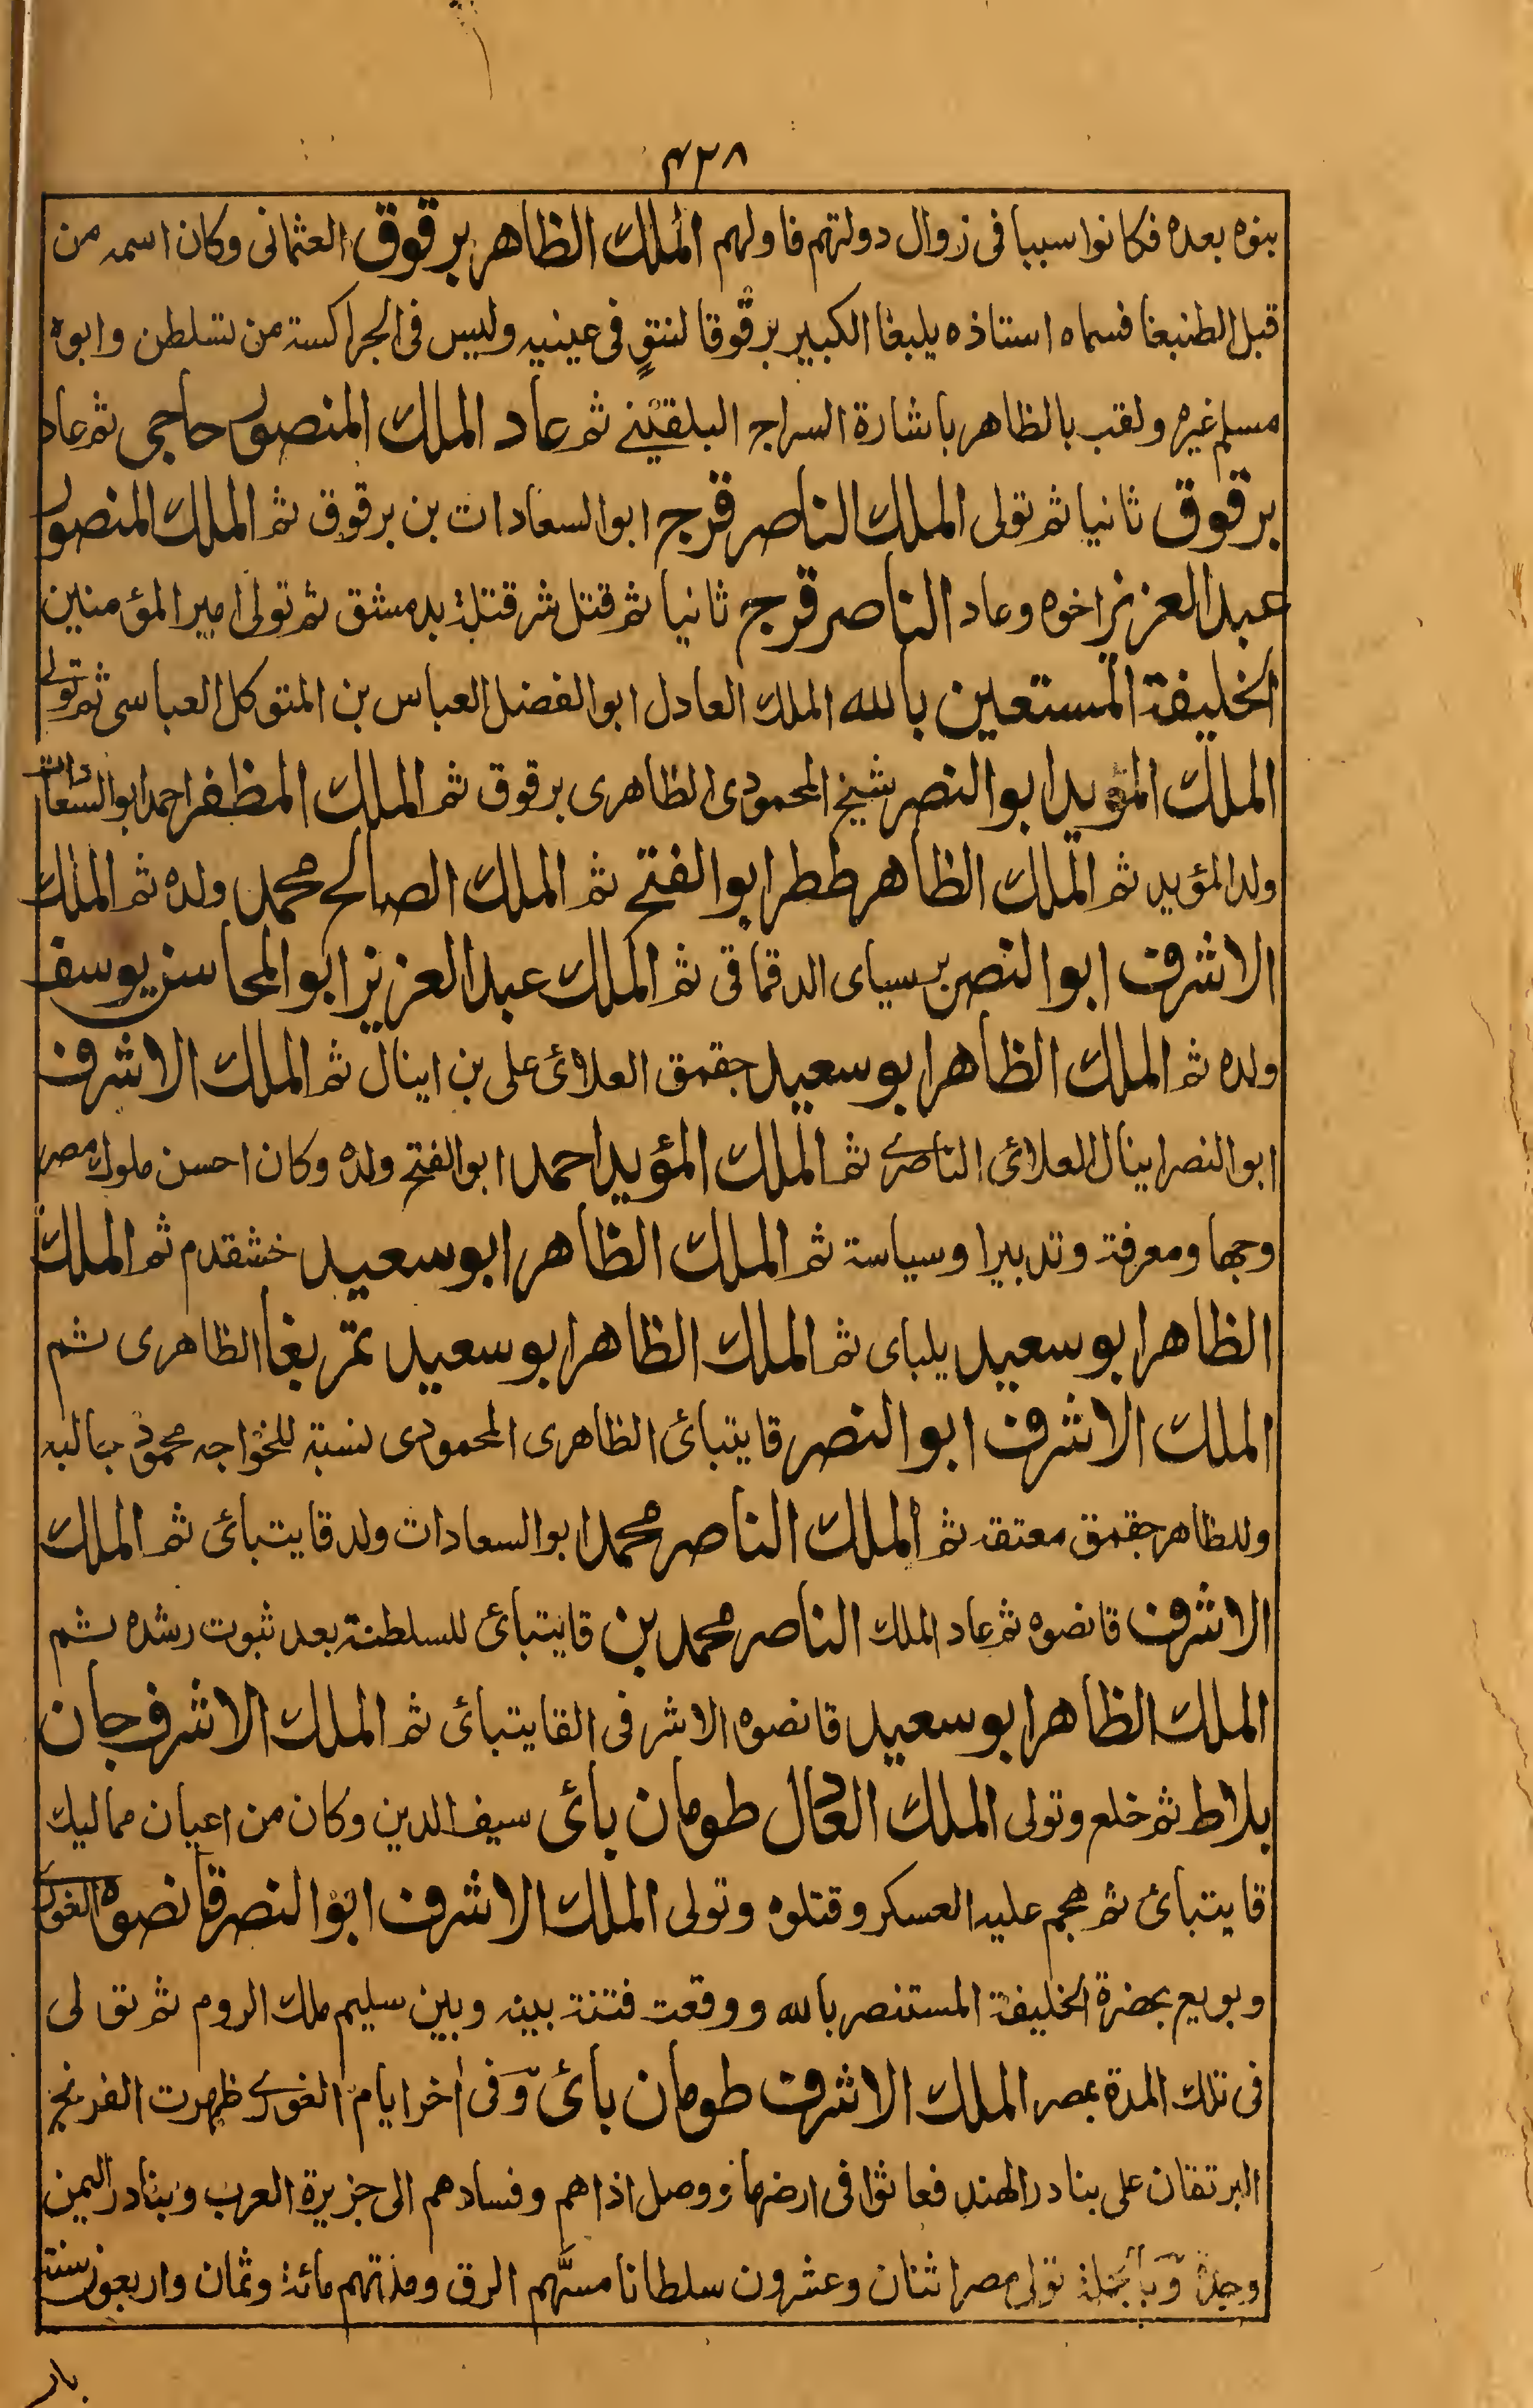 ٤٢٨
بنوه بعده فكانوا سببا فى زوال دولتهم فاولهم الملك الظاهر برقوق العثمانى وكان اسمه من
قبل الطنبغا فسماه استاذه يلبغا الكبير برقوقا لنتؤ فى عينيه وليس فى الجراكسة من تسلطن وابوه
مسلم غيره ولقب بالظاهر باشارة السراج البلقينى ثم عاد الملك المنصور حاجى ثم عاد
برقوق ثانيا ثم تولى الملك الناصر فرج ابو السعادات بن برقوق ثم الملك المنصور
عبد العزيز اخوه وعاد الناصر فرج ثانيا ثم قتل شر قتلة بدمشق ثم تولى امير المؤمنين
الخليفة المستعين بالله الملك العادل ابو الفضل العباس بن المتوكل العباسى ثم تولى
الملك المؤيد ابو النصر شيخ المحمودى الظاهرى برقوق ثم الملك المظفر احمد ابو السعادات
ولد المؤيد ثم الملك الظاهر ططر ابو الفتح ثم الملك الصالح محمد ولده ثم الملك
الاشرف ابو النصر برسباى الدقماقى ثم الملك عبد العزيز ابو المحاسن يوسف
ولده ثم الملك الظاهر ابو سعيد جقمق العلائى على بن اينال ثم الملك الاشرف
ابو النصر اينال العلائى الناصرى ثم الملك المؤيد احمد ابو الفتح ولده وكان احسن ملوك مصر
وجها ومعرفة وتدبيرا وسياسة ثم الملك الظاهر ابو سعيد خشقدم ثم الملك
الظاهر ابو سعيد يلباى ثم الملك الظاهر ابو سعيد تمر بغا الظاهرى ثم
الملك الاشرف ابو النصر قايتبائ الظاهرى المحمودى نسبة للخواجه محمود جالبه
وللظاهر جقمق معتقه ثم الملك الناصر محمد ابو السعادات ولد قايتبائ ثم الملك
الاشرف قانصوه ثم عاد الملك الناصر محمد بن قايتبائ للسلطنة بعد ثبوت رشده ثم
الملك الظاهر ابو سعيد قانصوه الاشرفى القايتبائ ثم الملك الاشرف جان
بلاط ثم خلع وتولى الملك العادل طومان بائ سيف الدين وكان من اعيان مماليك
قايتبائ ثم هجم عليه العسكر وقتلوه وتولى الملك الاشرف ابو النصر قانصوه الغورى
وبويع بحضرة الخليفة المستنصر بالله ووقعت فتنة بينه وبين سليم ملك الروم ثم تولى
فى تلك المدة بمصر الملك الاشرف طومان بائ وفى أخر ايام الغورى ظهرت الفرنج
البرتقان على بنادر الهند فعاثوا فى ارضها ووصل اذاهم وفسادهم الى جزيرة العرب وبنادر اليمن
وجدة وبالجملة تولى مصر اثنان وعشرون سلطانا مسّهم الرق ومدتهم مائة وثمان واربعون سنة
بار